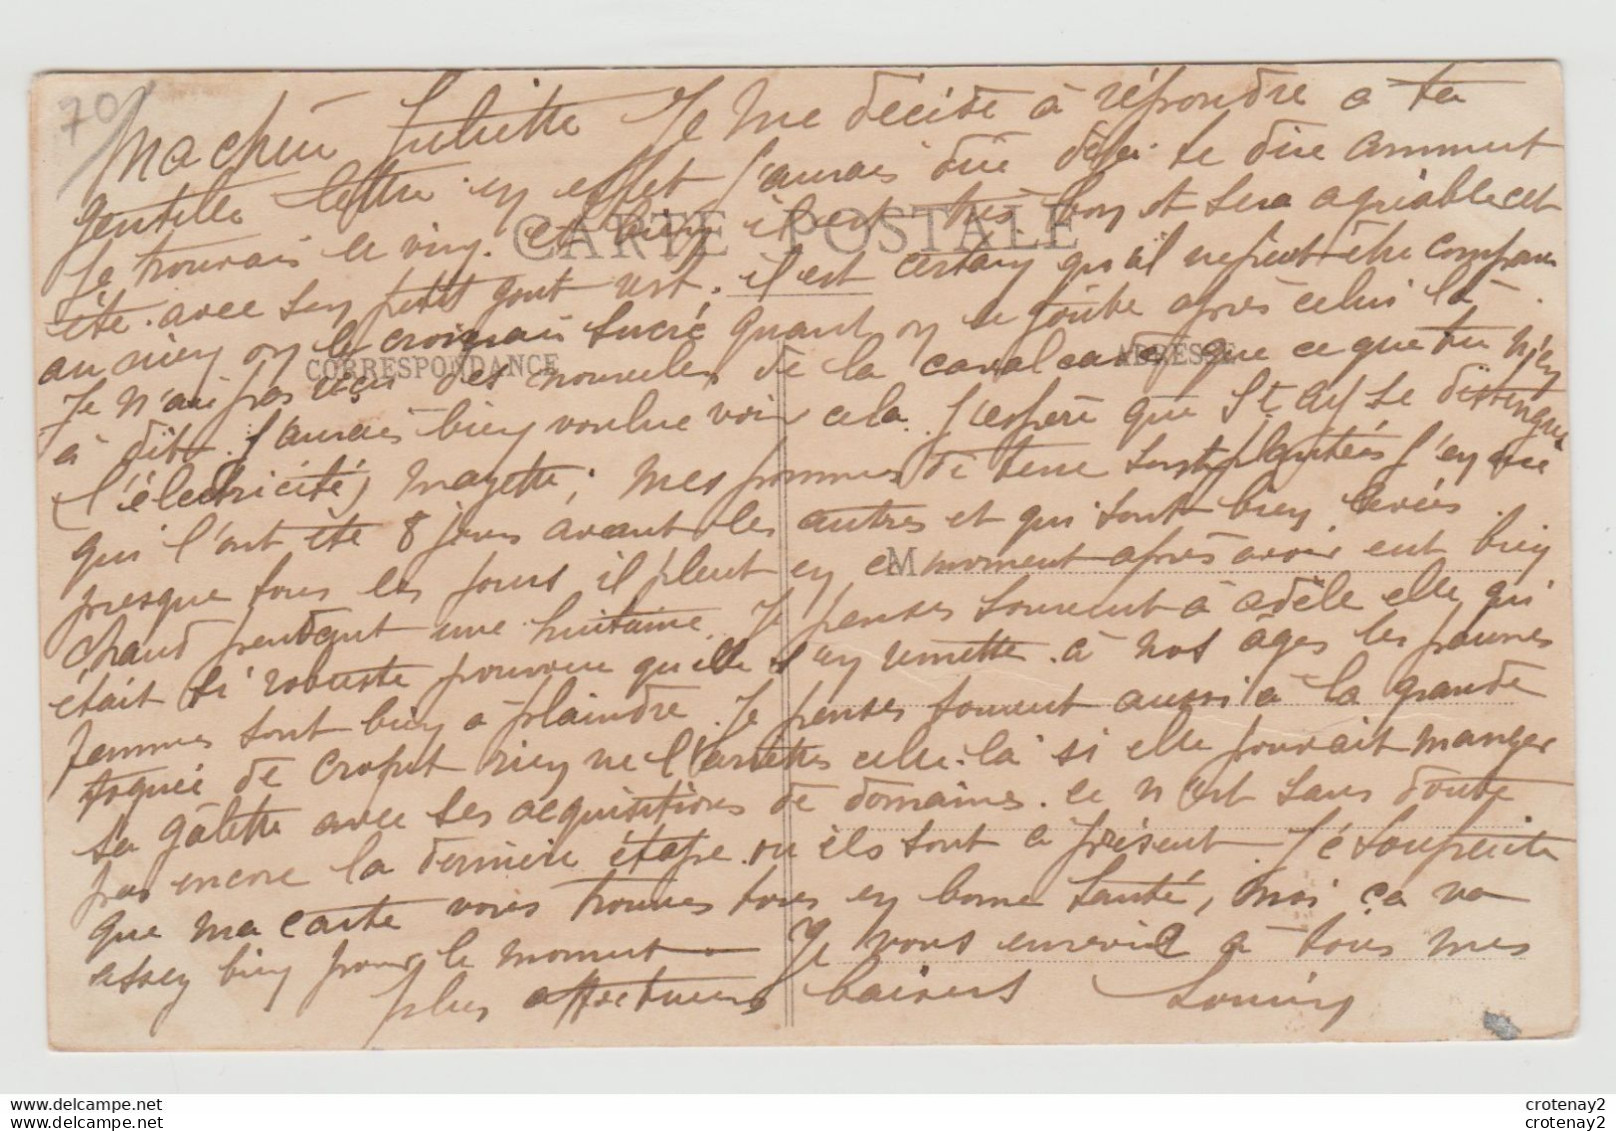 70
Ma chèrie Juliette Je me décide à répondre a ta
gentille lettre. en effet j'aurais due déja te dire comment
je trouvais le vin. et bien il est très bon et sera agriable cet
CARTE POSTALE
éte. avec son petit gout vert. il est certain qu'il ne peut être comparé
au mien on le croirais sucré quant on le goûte après celui là.
CORRESPONDANCE
ADRESSE
Je n'ai pas reçu des nouvelles de la cavalcade que ce que tu n'en
à dit. J'aurais bien voulue voir cela. J'espère que St ay se distingue
(l'électricité) mazette; mes pommes de terre sont plantées j'en ai
qui l'ont été 8 jours avant les autres et qui sont bien levées.
presque tous les jours il pleut en ce moment après avoir eut bien
M
chaud pendant une huitaine. Je penses souvent à adèle elle qui
était si robuste pourvu qu'elle s'en remette. à nos âges les jeunes
femmes sont bien a plaindre. Je penses souvent aussi à la grande
toquée de Croput rien ne l'arrêttes celle-là si elle pouvait manger
sa gâlette avec ses acquisitions de domaines. ce n'est sans doute
pas encore la dernière étape. ou ils sont a présent. Je souhaite
que ma carte vous trouves tous en bonne santé, moi ça va
assez bien pour le moment — Je vous envoie à tous mes
plus affectueux baisers Louis
crotenay2
crotenay2
www.delcampe.net
www.delcampe.net